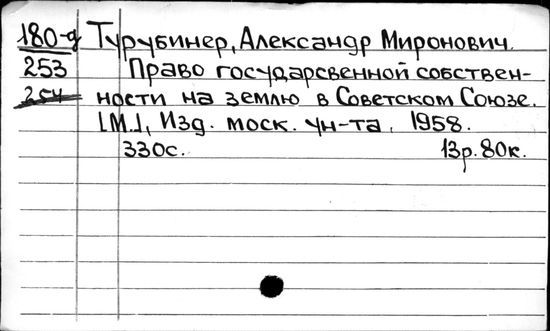 180-д Турубинер, Александр Миронович.
253 Право государсвенной собствен-
254 ности на землю в Советском Союзе.
[М.], Изд. моск. ун-та, 1958.
330с. 13р.80к.